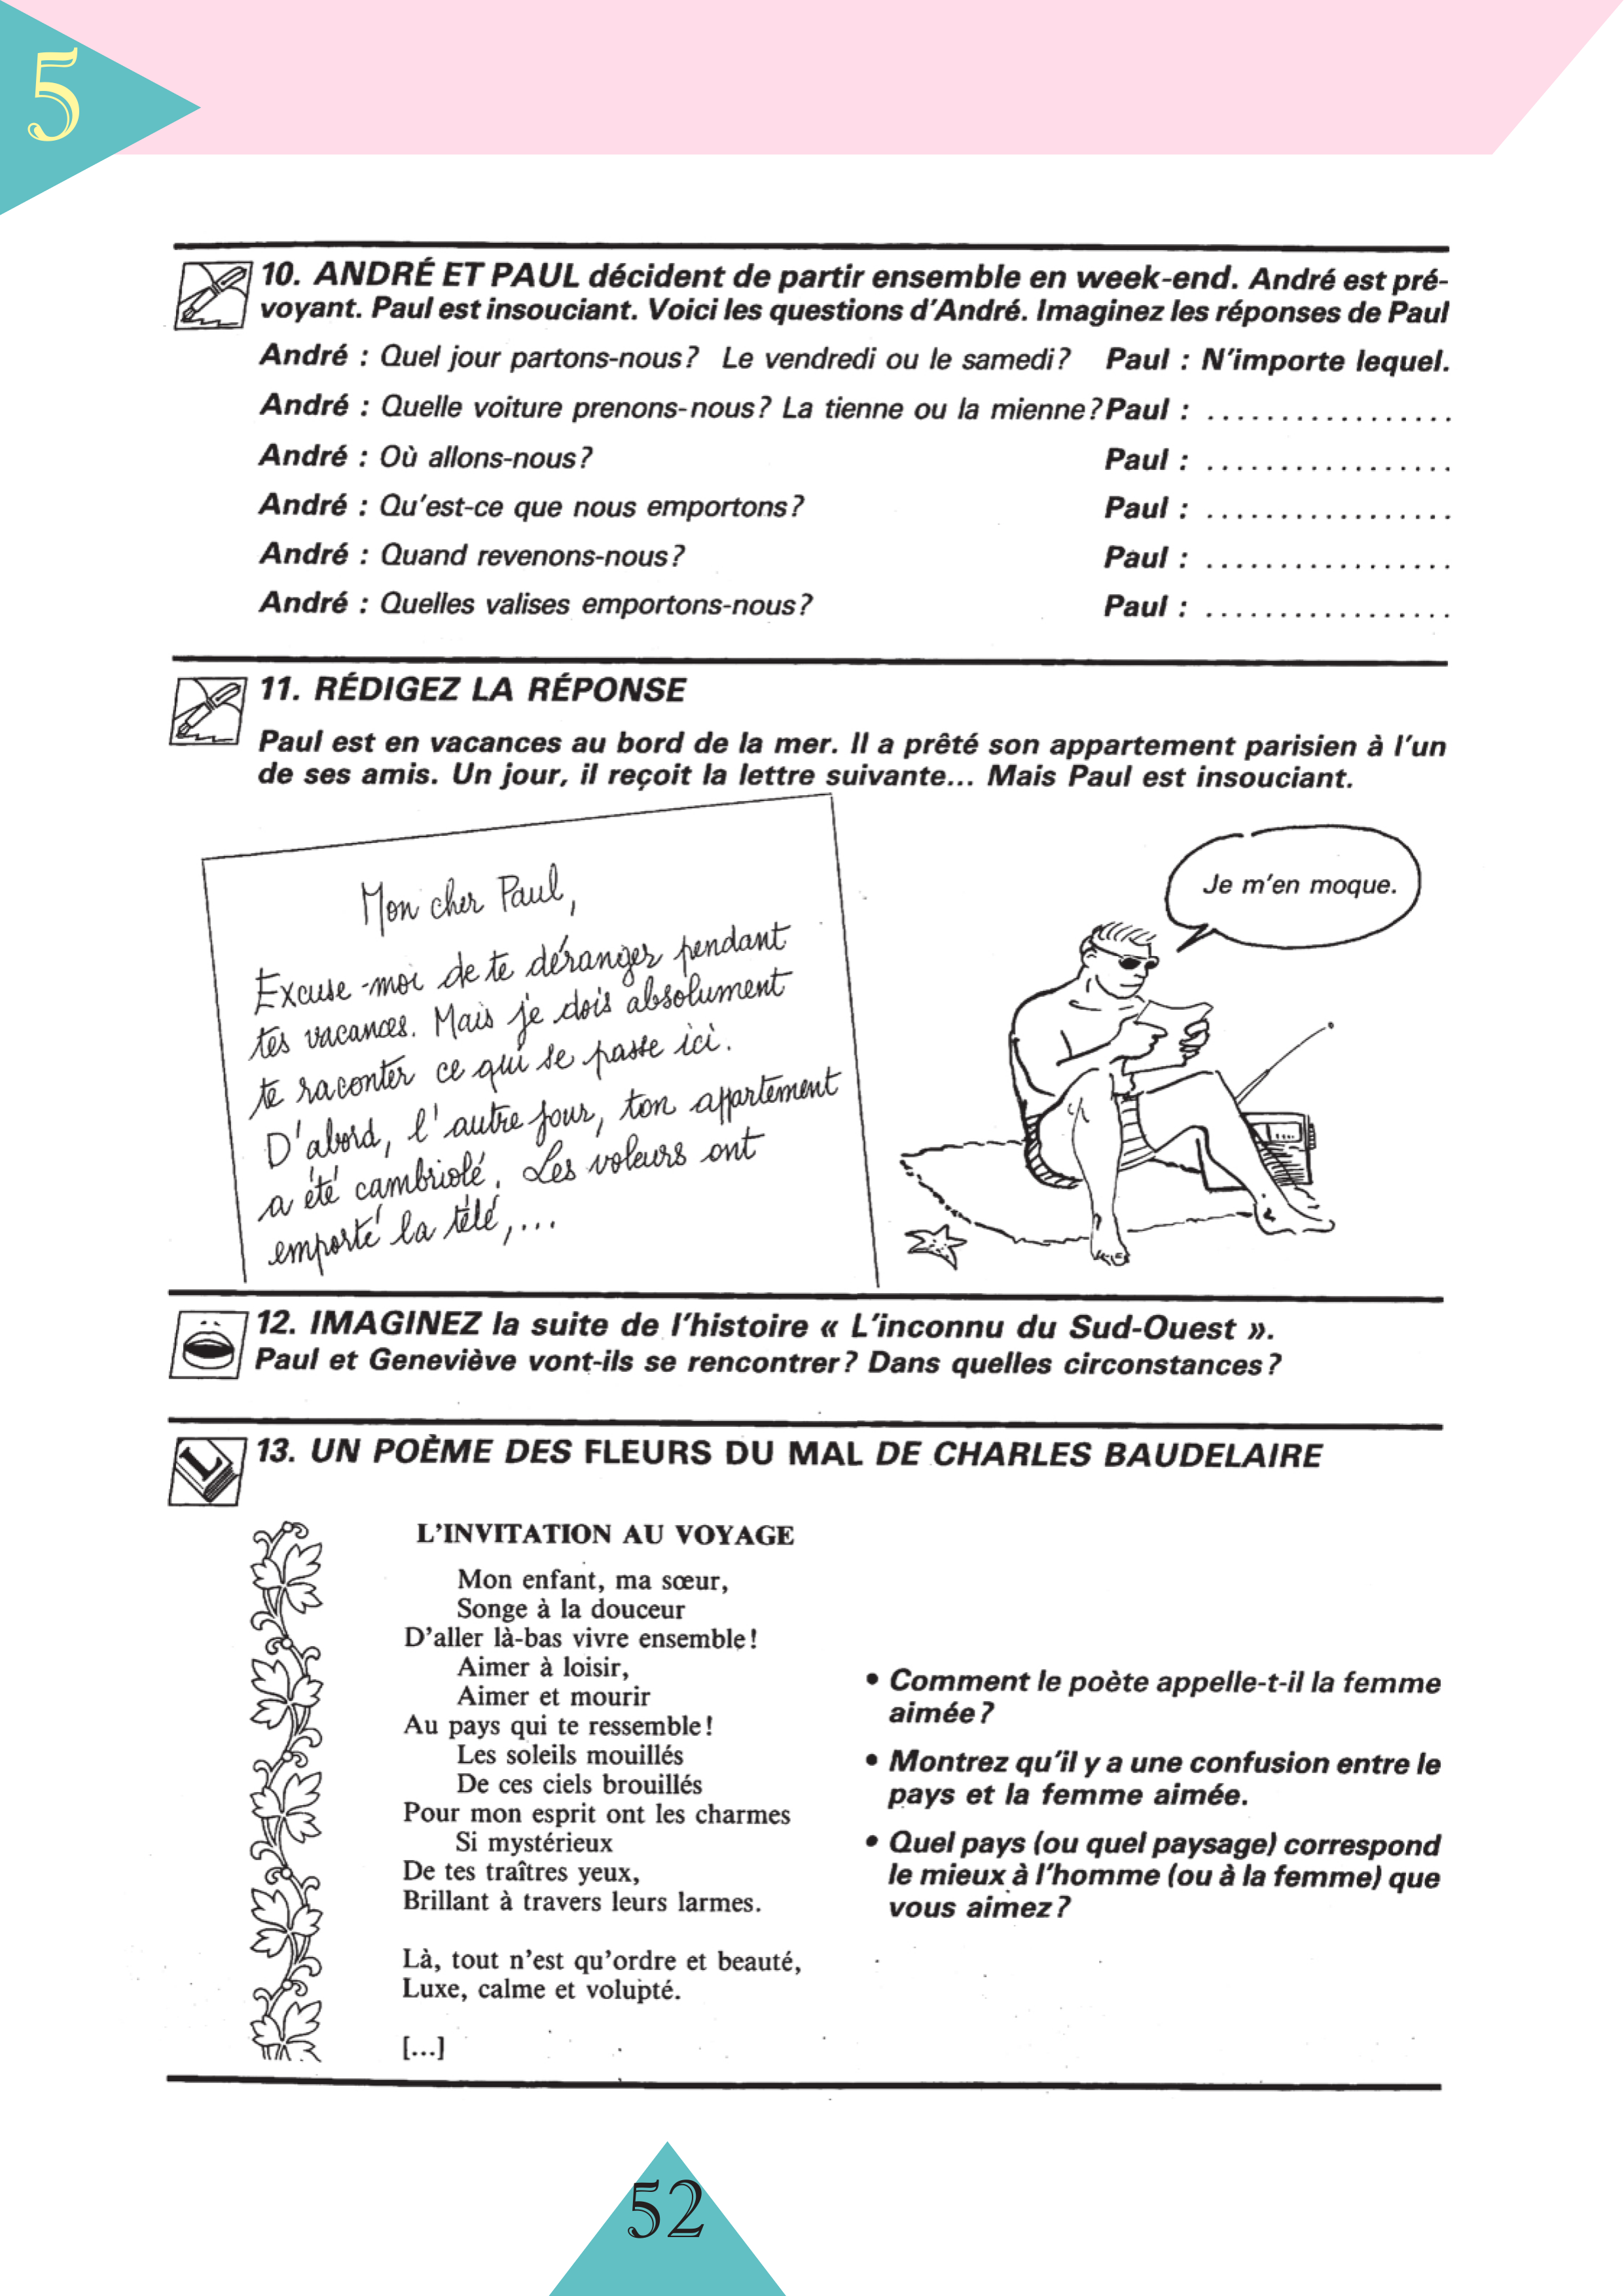 5
10. ANDRÉ ET PAUL décident de partir ensemble en week-end. André est pré-
voyant. Paul est insouciant. Voici les questions d'André. Imaginez les réponses de Paul
André : Quel jour partons-nous? Le vendredi ou le samedi? Paul : N'importe lequel.
André : Quelle voiture prenons-nous? La tienne ou la mienne? Paul : .................
André : Où allons-nous? Paul : .................
André : Qu'est-ce que nous emportons? Paul : .................
André : Quand revenons-nous? Paul : .................
André : Quelles valises emportons-nous? Paul : .................
11. RÉDIGEZ LA RÉPONSE
Paul est en vacances au bord de la mer. Il a prêté son appartement parisien à l'un
de ses amis. Un jour, il reçoit la lettre suivante... Mais Paul est insouciant.
Mon cher Paul,
Excuse-moi de te déranger pendant
tes vacances. Mais je dois absolument
te raconter ce qui se passe ici.
D'abord, l'autre jour, ton appartement
a été cambriolé. Les voleurs ont
emporté la télé,...
Je m'en moque.
12. IMAGINEZ la suite de l'histoire « L'inconnu du Sud-Ouest ».
Paul et Geneviève vont-ils se rencontrer? Dans quelles circonstances?
13. UN POÈME DES FLEURS DU MAL DE CHARLES BAUDELAIRE
L
L'INVITATION AU VOYAGE
Mon enfant, ma sœur,
Songe à la douceur
D'aller là-bas vivre ensemble!
Aimer à loisir,
Aimer et mourir
Au pays qui te ressemble!
Les soleils mouillés
De ces ciels brouillés
Pour mon esprit ont les charmes
Si mystérieux
De tes traîtres yeux,
Brillant à travers leurs larmes.
Là, tout n'est qu'ordre et beauté,
Luxe, calme et volupté.
[...]
• Comment le poète appelle-t-il la femme
aimée?
• Montrez qu'il y a une confusion entre le
pays et la femme aimée.
• Quel pays (ou quel paysage) correspond
le mieux à l'homme (ou à la femme) que
vous aimez?
52